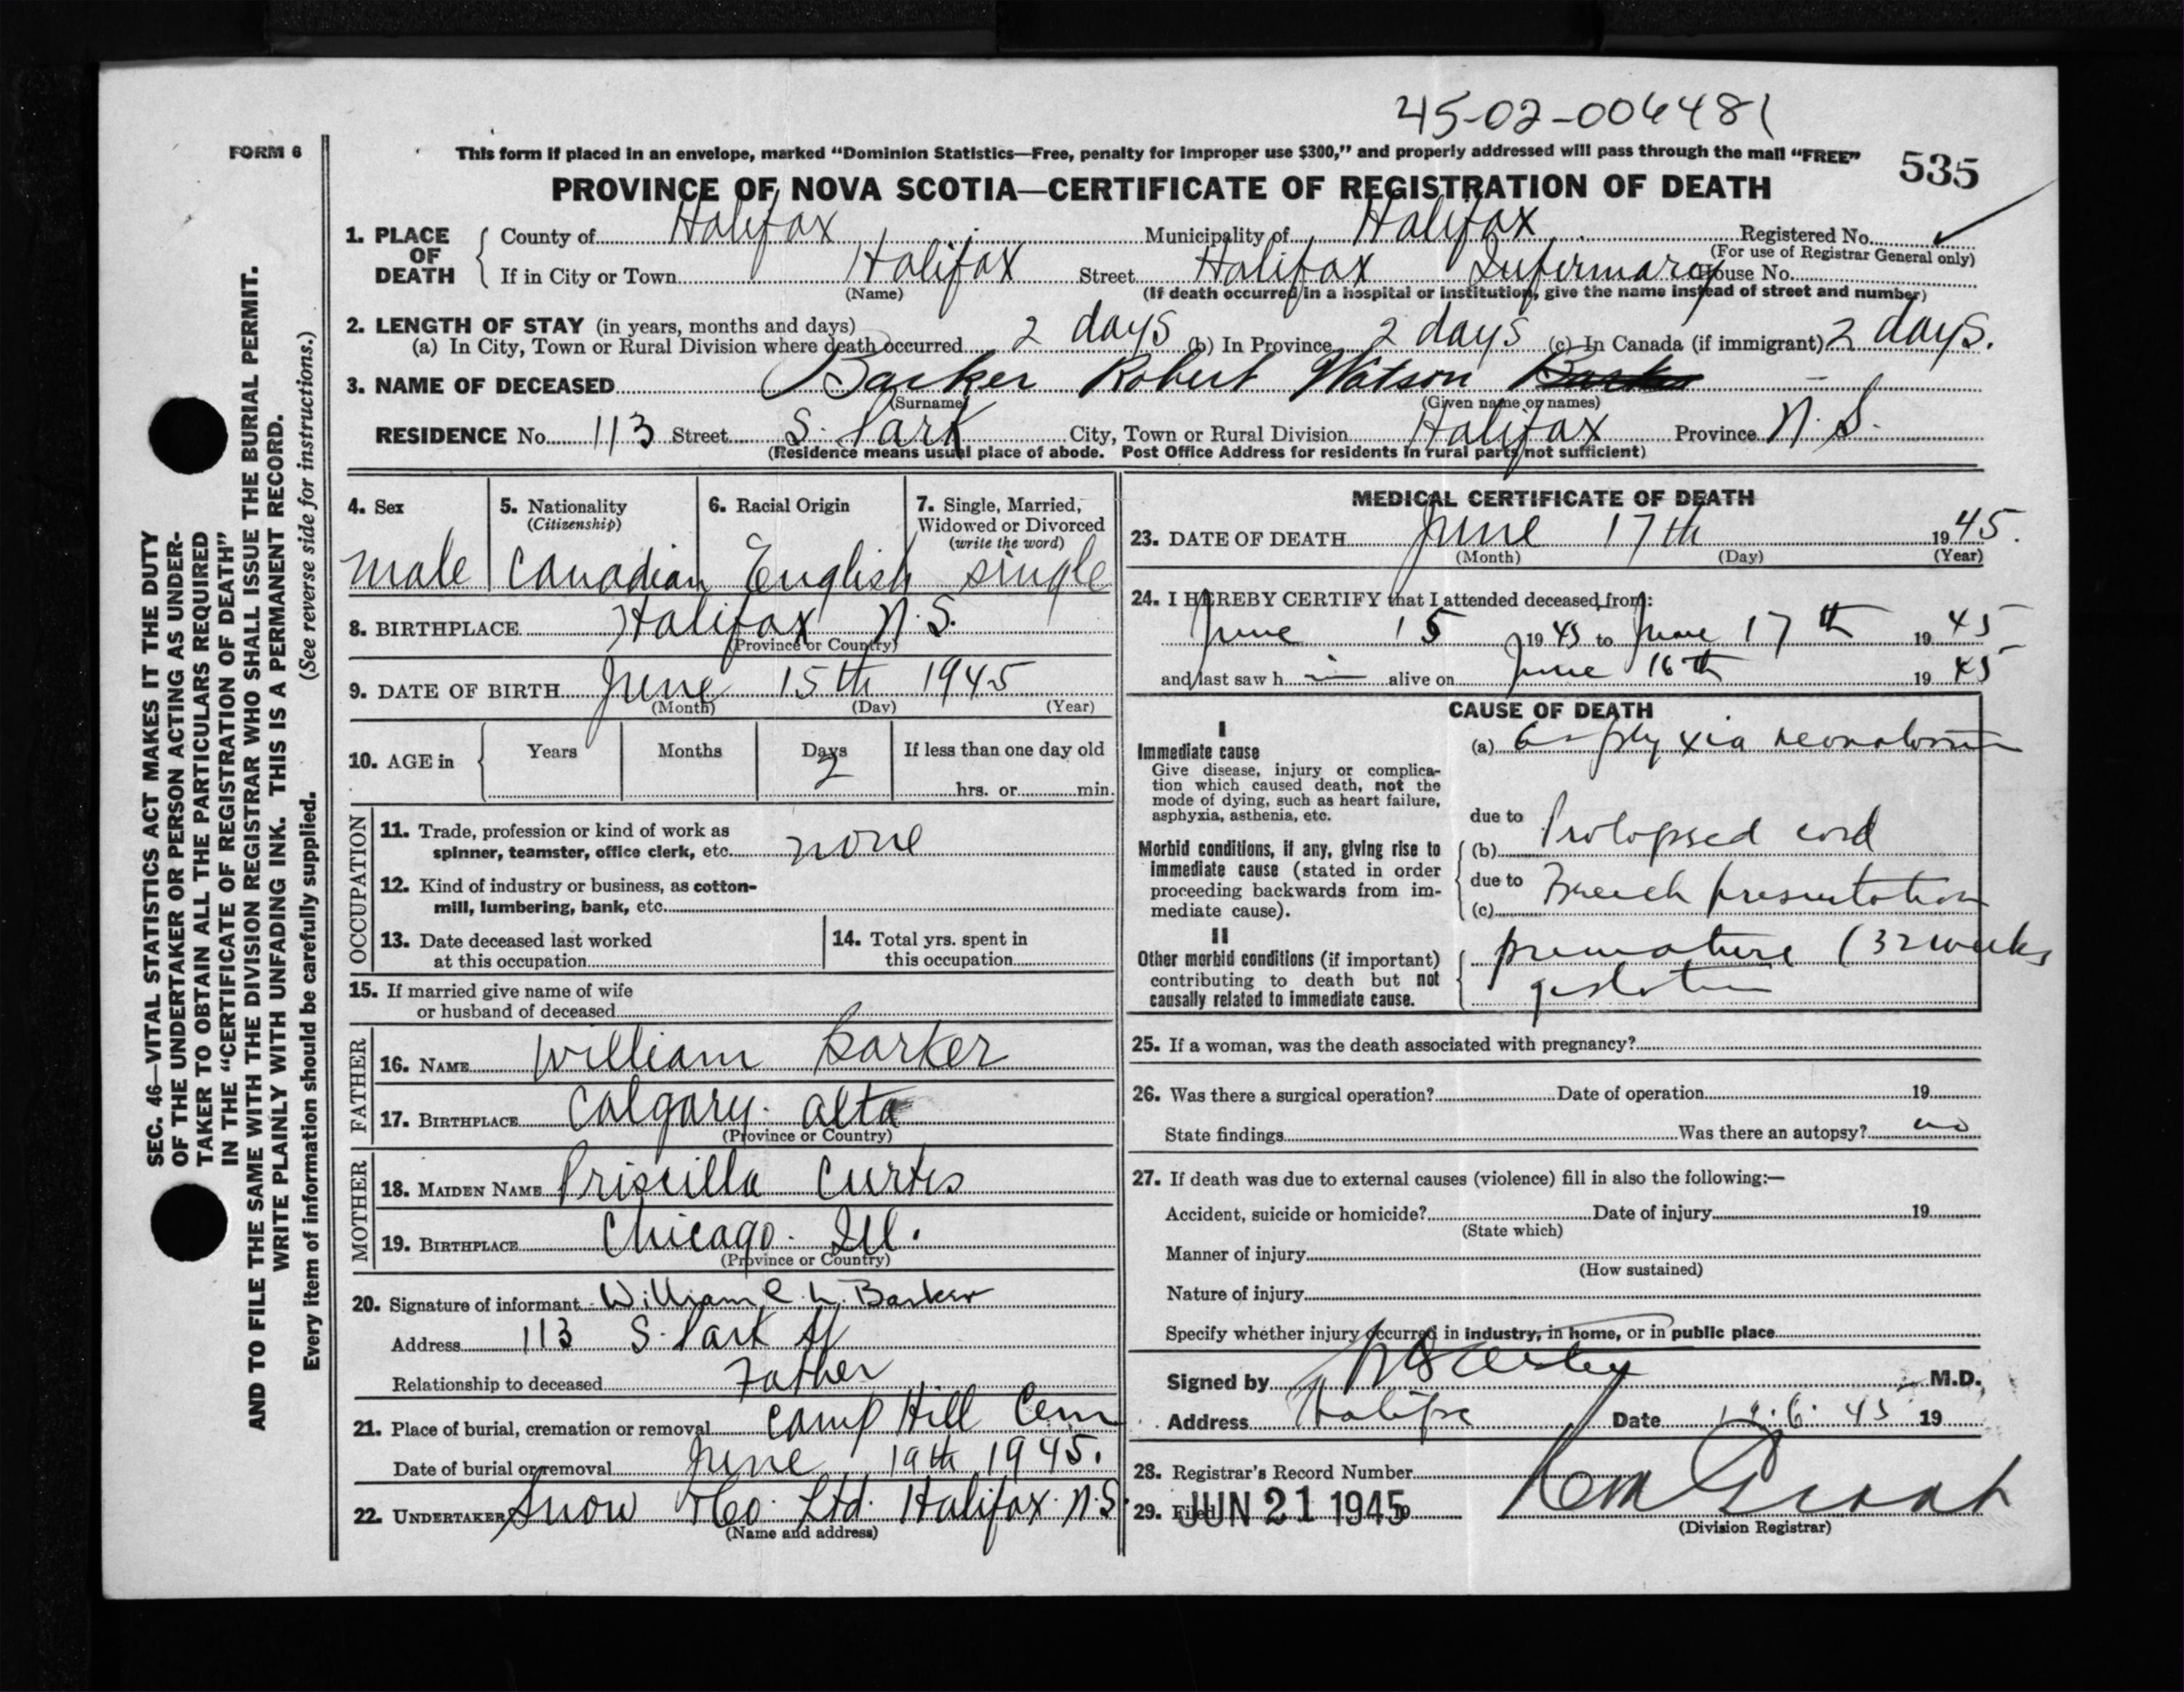 45-02-006481
FORM 6
This form if placed in an envelope, marked "Dominion Statistics—Free, penalty for improper use $300," and properly addressed will pass through the mail "FREE"
535
PROVINCE OF NOVA SCOTIA—CERTIFICATE OF REGISTRATION OF DEATH
1. PLACE OF DEATH
County of Halifax Municipality of Halifax Registered No.
(For use of Registrar General only)
If in City or Town Halifax Street Halifax Infirmary House No.
(Name) (If death occurred in a hospital or institution, give the name instead of street and number)
2. LENGTH OF STAY (in years, months and days)
(a) In City, Town or Rural Division where death occurred 2 days (b) In Province 2 days (c) In Canada (if immigrant) 2 days.
3. NAME OF DECEASED Barker Robert Watson
(Surname) (Given name or names)
RESIDENCE No. 113 Street S. Park City, Town or Rural Division Halifax Province N.S.
(Residence means usual place of abode. Post Office Address for residents in rural parts not sufficient)
4. Sex
male
5. Nationality
(Citizenship)
Canadian
6. Racial Origin
English
7. Single, Married,
Widowed or Divorced
(write the word)
single
8. BIRTHPLACE Halifax N.S.
(Province or Country)
9. DATE OF BIRTH June 15th 1945
(Month) (Day) (Year)
10. AGE in
Years Months Days If less than one day old
2
hrs. or min.
OCCUPATION
11. Trade, profession or kind of work as
spinner, teamster, office clerk, etc. none
12. Kind of industry or business, as cotton-
mill, lumbering, bank, etc.
13. Date deceased last worked
at this occupation
14. Total yrs. spent in
this occupation
15. If married give name of wife
or husband of deceased
FATHER
16. NAME William Barker
17. BIRTHPLACE Calgary. Alta
(Province or Country)
MOTHER
18. MAIDEN NAME Priscilla Curtis
19. BIRTHPLACE Chicago. Ill.
(Province or Country)
20. Signature of informant William C. L. Barker
Address 113 S. Park St
Relationship to deceased Father
21. Place of burial, cremation or removal Camp Hill Cem
Date of burial or removal June 19th 1945.
22. UNDERTAKER Snow & Co. Ltd. Halifax. N.S.
(Name and address)
MEDICAL CERTIFICATE OF DEATH
23. DATE OF DEATH June 17th 1945.
(Month) (Day) (Year)
24. I HEREBY CERTIFY that I attended deceased from:
June 15 1945 to June 17th 1945
and last saw h im alive on June 16th 1945
CAUSE OF DEATH
I
Immediate cause
Give disease, injury or complica-
tion which caused death, not the
mode of dying, such as heart failure,
asphyxia, asthenia, etc.
(a) Asphyxia neonatorum
due to
Morbid conditions, if any, giving rise to
immediate cause (stated in order
proceeding backwards from im-
mediate cause).
(b) Prolapsed cord
due to
(c) Breech presentation
II
Other morbid conditions (if important)
contributing to death but not
causally related to immediate cause.
premature (32 weeks
gestation
25. If a woman, was the death associated with pregnancy?
26. Was there a surgical operation? Date of operation 19
State findings Was there an autopsy? no
27. If death was due to external causes (violence) fill in also the following:—
Accident, suicide or homicide? Date of injury 19
(State which)
Manner of injury
(How sustained)
Nature of injury
Specify whether injury occurred in industry, in home, or in public place
Signed by M.D.
Address Halifax Date 6. 45 19
28. Registrar's Record Number
29. Filed JUN 21 1945 19
(Division Registrar)
SEC. 46—VITAL STATISTICS ACT MAKES IT THE DUTY
OF THE UNDERTAKER OR PERSON ACTING AS UNDER-
TAKER TO OBTAIN ALL THE PARTICULARS REQUIRED
IN THE "CERTIFICATE OF REGISTRATION OF DEATH"
AND TO FILE THE SAME WITH THE DIVISION REGISTRAR WHO SHALL ISSUE THE BURIAL PERMIT.
WRITE PLAINLY WITH UNFADING INK. THIS IS A PERMANENT RECORD.
Every item of information should be carefully supplied. (See reverse side for instructions.)